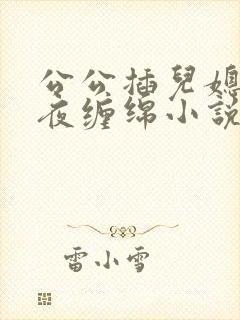 公公插兒媳
夜缠绵小說
雷小雪